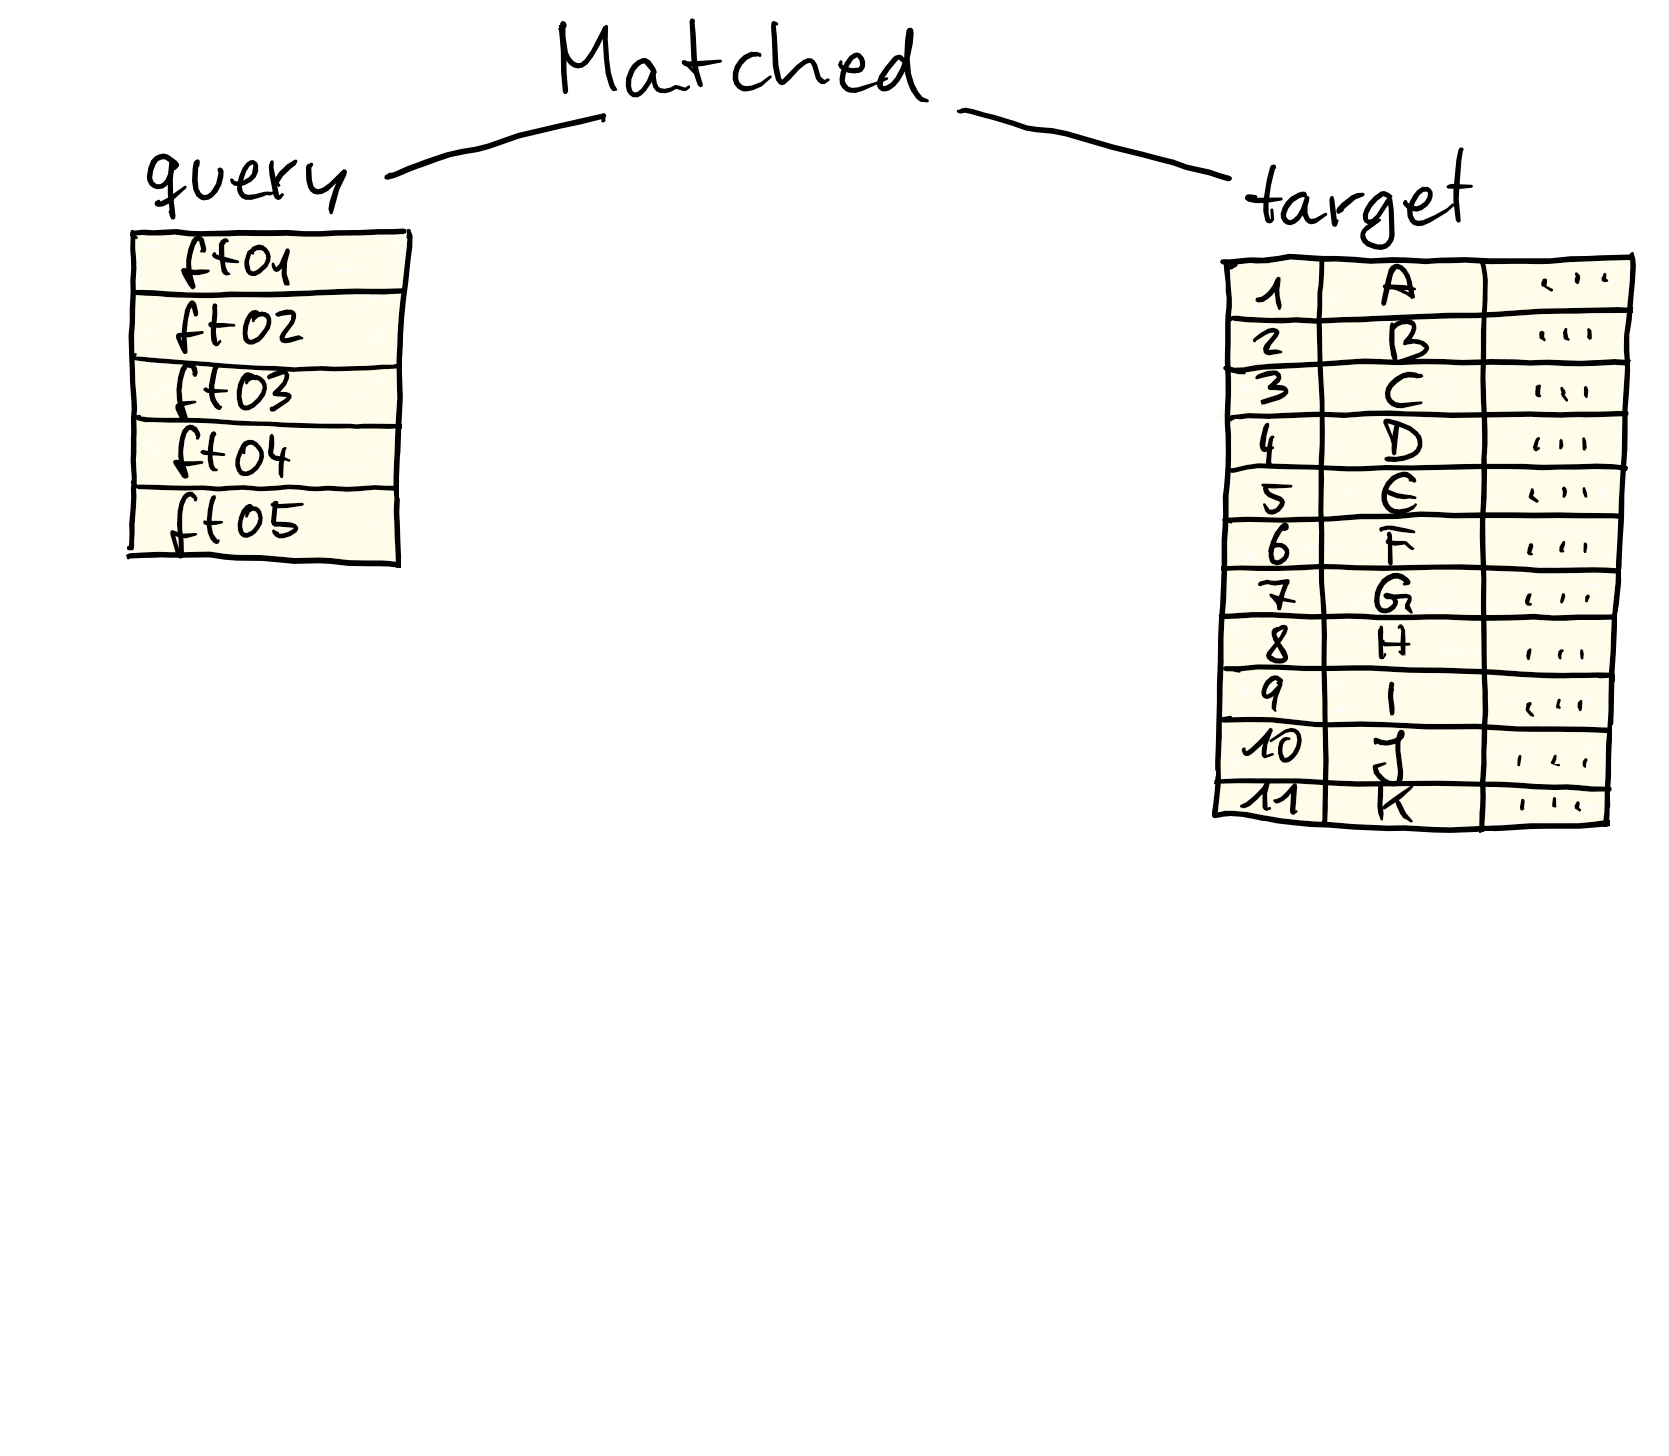 Matched
query
ft01
ft02
ft03
ft04
ft05
target
1 A ...
2 B ...
3 C ...
4 D ...
5 E ...
6 F ...
7 G ...
8 H ...
9 I ...
10 J ...
11 K ...